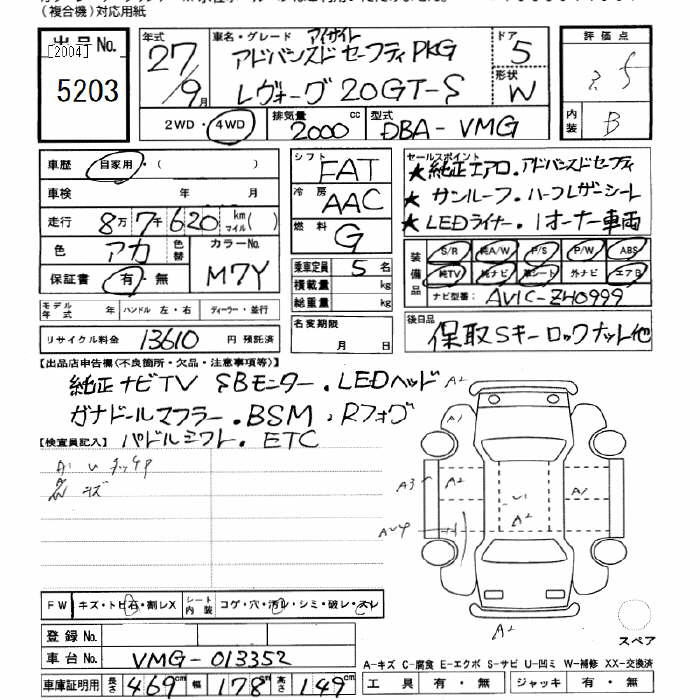 (複合機)対応用紙
出品No.
[2004]
5203
年式
27/9月
車名・グレード
アイサイト
アドバンスドセーフティPKG
レヴォーグ 20GT-S
ドア
5
形状
W
評価点
3.5
内装
B
2WD・4WD
排気量
2000cc
型式
DBA-VMG
車歴 自家用・( )
車検 年 月
走行 8万7千620 km マイル( )
色 アカ 色替
カラーNo.
M7Y
保証書 有・無
シフト FAT
冷房 AAC
燃料 G
乗車定員 5名
積載量 kg
総重量 kg
名変期限
月 日
セールスポイント
★純正エアロ.アドバンスドセーフティ
★サンルーフ.ハーフレザーシート
★LEDライナー.1オーナー車両
装備品
S/R 純A/W P/S P/W ABS
純TV 純ナビ 革シート 外ナビ エアB
ナビ型番: AVIC-ZH0999
モデル年式 年 ハンドル 左・右 ディーラー・並行
リサイクル料金 13610 円 預託済
後日品
保取Sキーロックナット他
【出品店申告欄(不良箇所・欠品・注意事項等)】
純正ナビTV SBモニター.LEDヘッド
ガナドールマフラー.BSM,Rフォグ
【検査員記入】 パドルシフト.ETC
キズ
A2
A1
A3
A2
A1
A2
A2
FW キズ・トビ石・割レX
シート内装 コゲ・穴・汚レ・シミ・破レ・スレ
登録No.
車台No. VMG-013352
車庫証明用 長さ 469cm 幅 178cm 高さ 149cm
スペア
A-キズ C-腐食 E-エクボ S-サビ U-凹ミ W-補修 XX-交換済
工具 有・無 ジャッキ 有・無